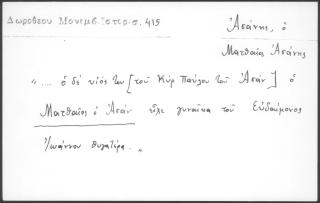 Δωροθεου Μονεμβ. Ιστορ. σ. 415
Ἀσάνης, ὁ
Ματθαῖος Ἀσάνης
"... ὁ δὲ υἱός των [τοῦ Κὺρ Παύλου τοῦ Ἀσάν] ὁ
Ματθαῖος ὁ Ἀσάν εἶχε γυναῖκα τοῦ Εὐδαίμονος
Ἰωάννου θυγατέρα. "